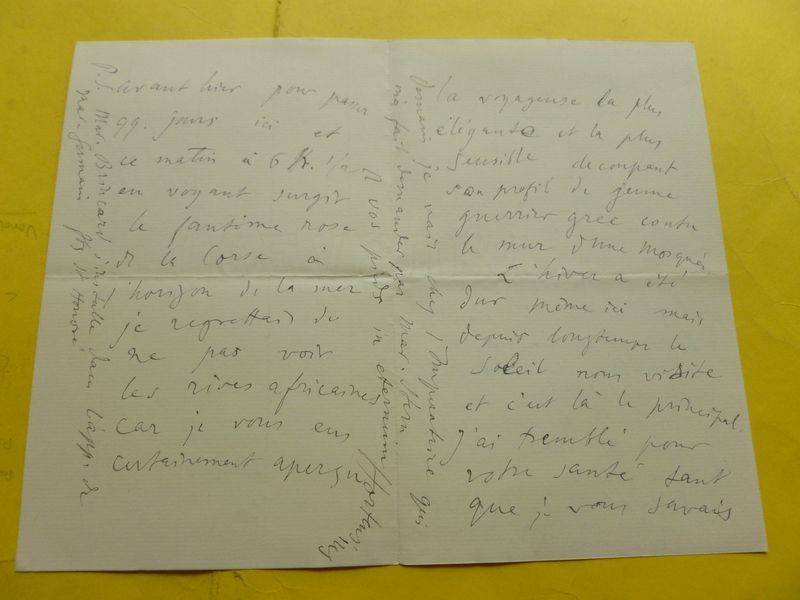 avant hier pour passer
qq. jours ici et
ce matin à 6 h. 1/2
en voyant surgir
le fantôme rose
de la Corse à
l'horizon de la mer
je regrettais de
ne pas voir
les rives africaines
car je vous eus
certainement aperçu
la voyageuse la plus
élégante et la plus
sensible decoupant
son profil de jeune
guerrier grec contre
le mur d'une mosquée
L'hiver a été
dur même ici mais
depuis longtemps le
soleil nous visite
et c'est là le principal.
J'ai tremblé pour
votre santé tant
que je vous savais
Demain je vais chez l'Impératrice qui
m'a fait demander par Mad. Stern
A vos pieds in eternum
P.S. Mad. Brincard s'installe dans l'app. de
Mad. Germain fbg St Honoré